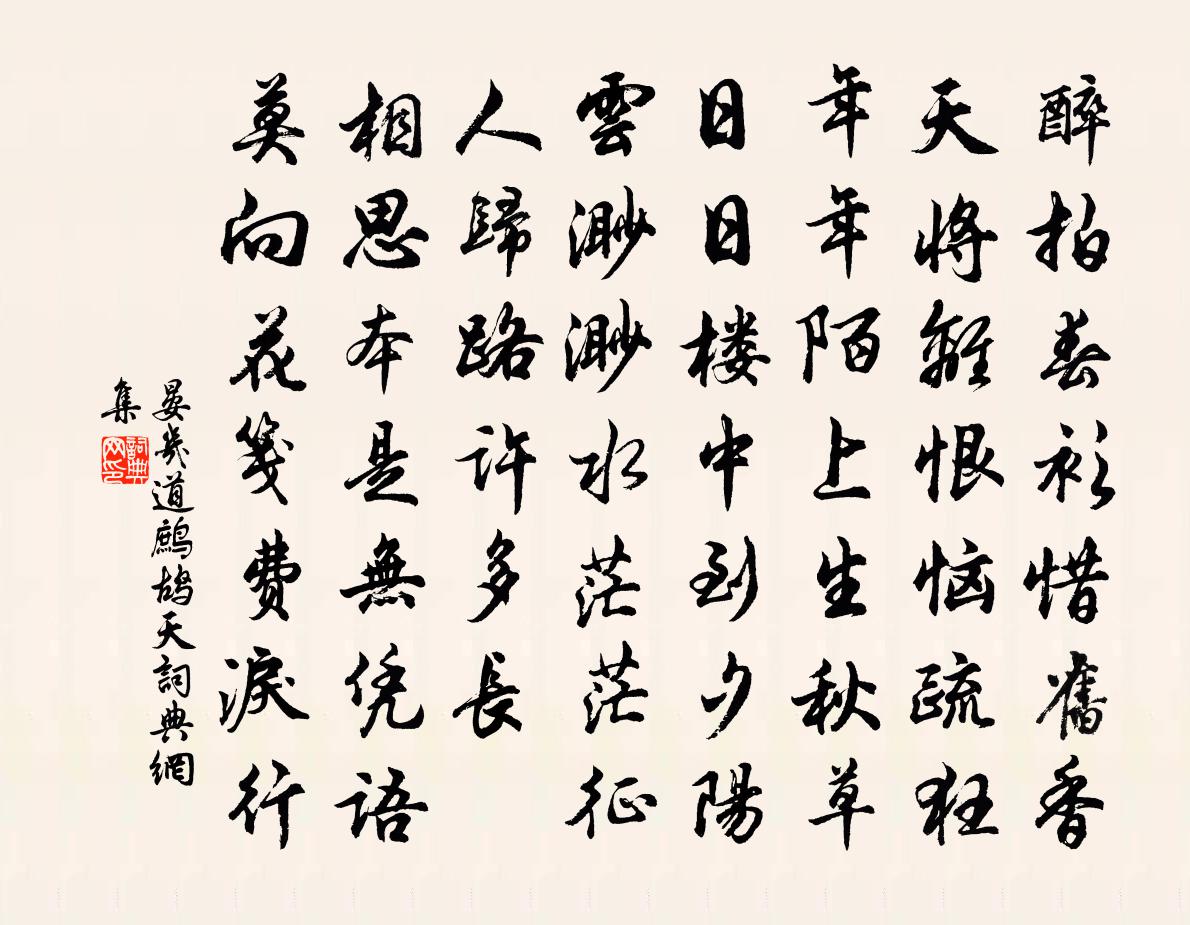 醉拍春衫惜舊香
天將離恨恼疏狂
年年陌上生秋草
日日楼中到夕陽
雲渺渺水茫茫征
人歸路許多長
相思本是無凭語
莫向花箋費淚行
晏幾道鷓鴣天詞典網
集
詞典
网印